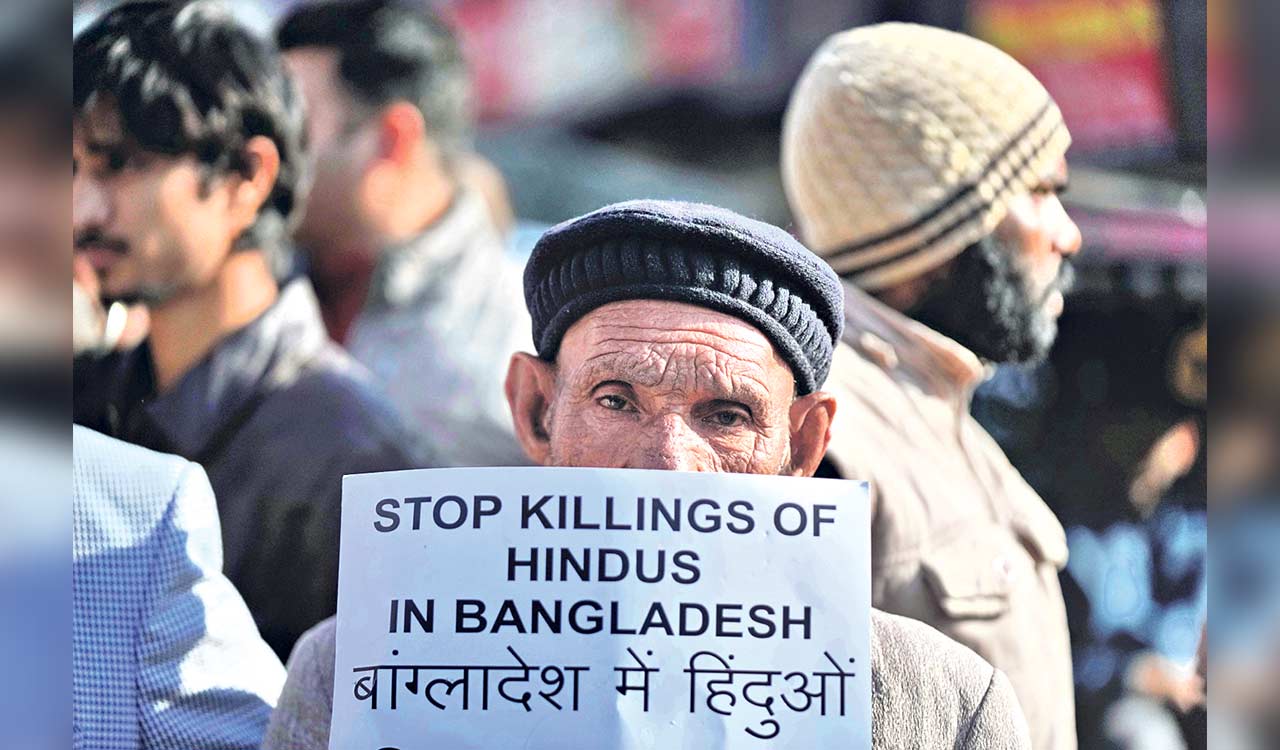 STOP KILLINGS OF
HINDUS
IN BANGLADESH
बांग्लादेश में हिंदुओं